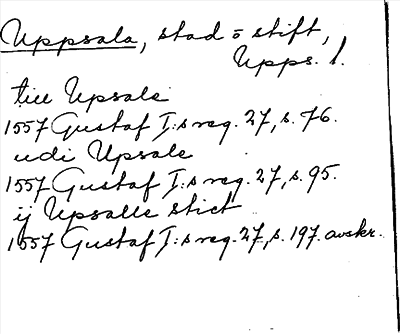 Uppsala, stad o stift,
Upps. l.
till Upsale
1557 Gustaf I:s reg. 27, s. 76.
udi Upsale
1557 Gustaf I:s reg. 27, s. 95.
ij Upsalle stict
1557 Gustaf I:s reg. 27, s. 197. avskr.